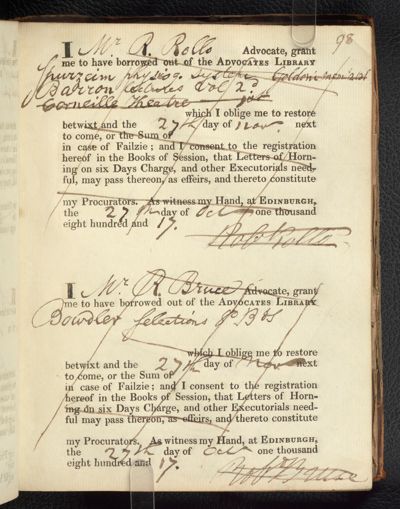 98
I Mr. R. Rollo Advocate, grant
me to have borrowed out of the ADVOCATES LIBRARY
Spurzeim physiog. System
Barron Vol 2d
Corneille Theatre
which I oblige me to restore
betwixt and the 27th day of Nov. next
to come, or the Sum of
in case of Failzie; and I consent to the registration
hereof in the Books of Session, that Letters of Horn-
ing on six Days Charge, and other Executorials need-
ful, may pass thereon, as effeirs, and thereto constitute
my Procurators. As witness my Hand, at EDINBURGH,
the 27th day of Oct one thousand
eight hundred and 17.
Robt Rollo
I Mr. R. Bruce Advocate, grant
me to have borrowed out of the ADVOCATES LIBRARY
Bowdler Selections
which I oblige me to restore
betwixt and the 27th day of Nov next
to come, or the Sum of
in case of Failzie; and I consent to the registration
hereof in the Books of Session, that Letters of Horn-
ing on six Days Charge, and other Executorials need-
ful may pass thereon, as effeirs, and thereto constitute
my Procurators. As witness my Hand, at EDINBURGH,
the 27th day of Oct one thousand
eight hundred and 17.
Robt Bruce